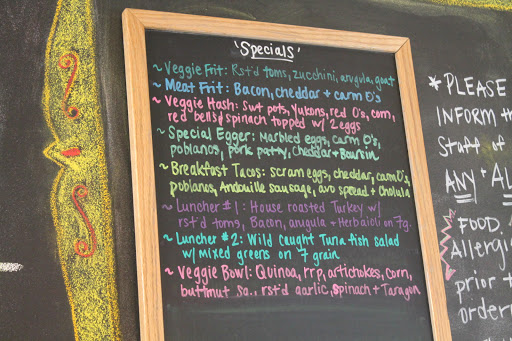 'Specials'
~ Veggie Frit: Rst'd toms, zucchini, arugula, goat
~ Meat Frit: Bacon, cheddar + carm O's
~ Veggie Hash: Swt pots, Yukons, red O's, corn,
red bells, spinach topped w/ 2 eggs
~ Special Egger: Marbled eggs, carm O's,
poblanos, pork patty, cheddar + Boursin
~ Breakfast Tacos: scram eggs, cheddar, carm O's,
poblanos, Andouille sausage, avo spread + Cholula
~ Luncher #1: House roasted Turkey w/
rst'd toms, Bacon, arugula + Herbaioli on 7g.
~ Luncher #2: Wild caught Tuna fish salad
w/ mixed greens on 7 grain
~ Veggie Bowl: Quinoa, rrp, artichokes, corn,
buttnut sq., rst'd garlic, spinach + Taragon
* PLEASE
INFORM th
Staff of
ANY + AL
FOOD
Allergi
prior t
order